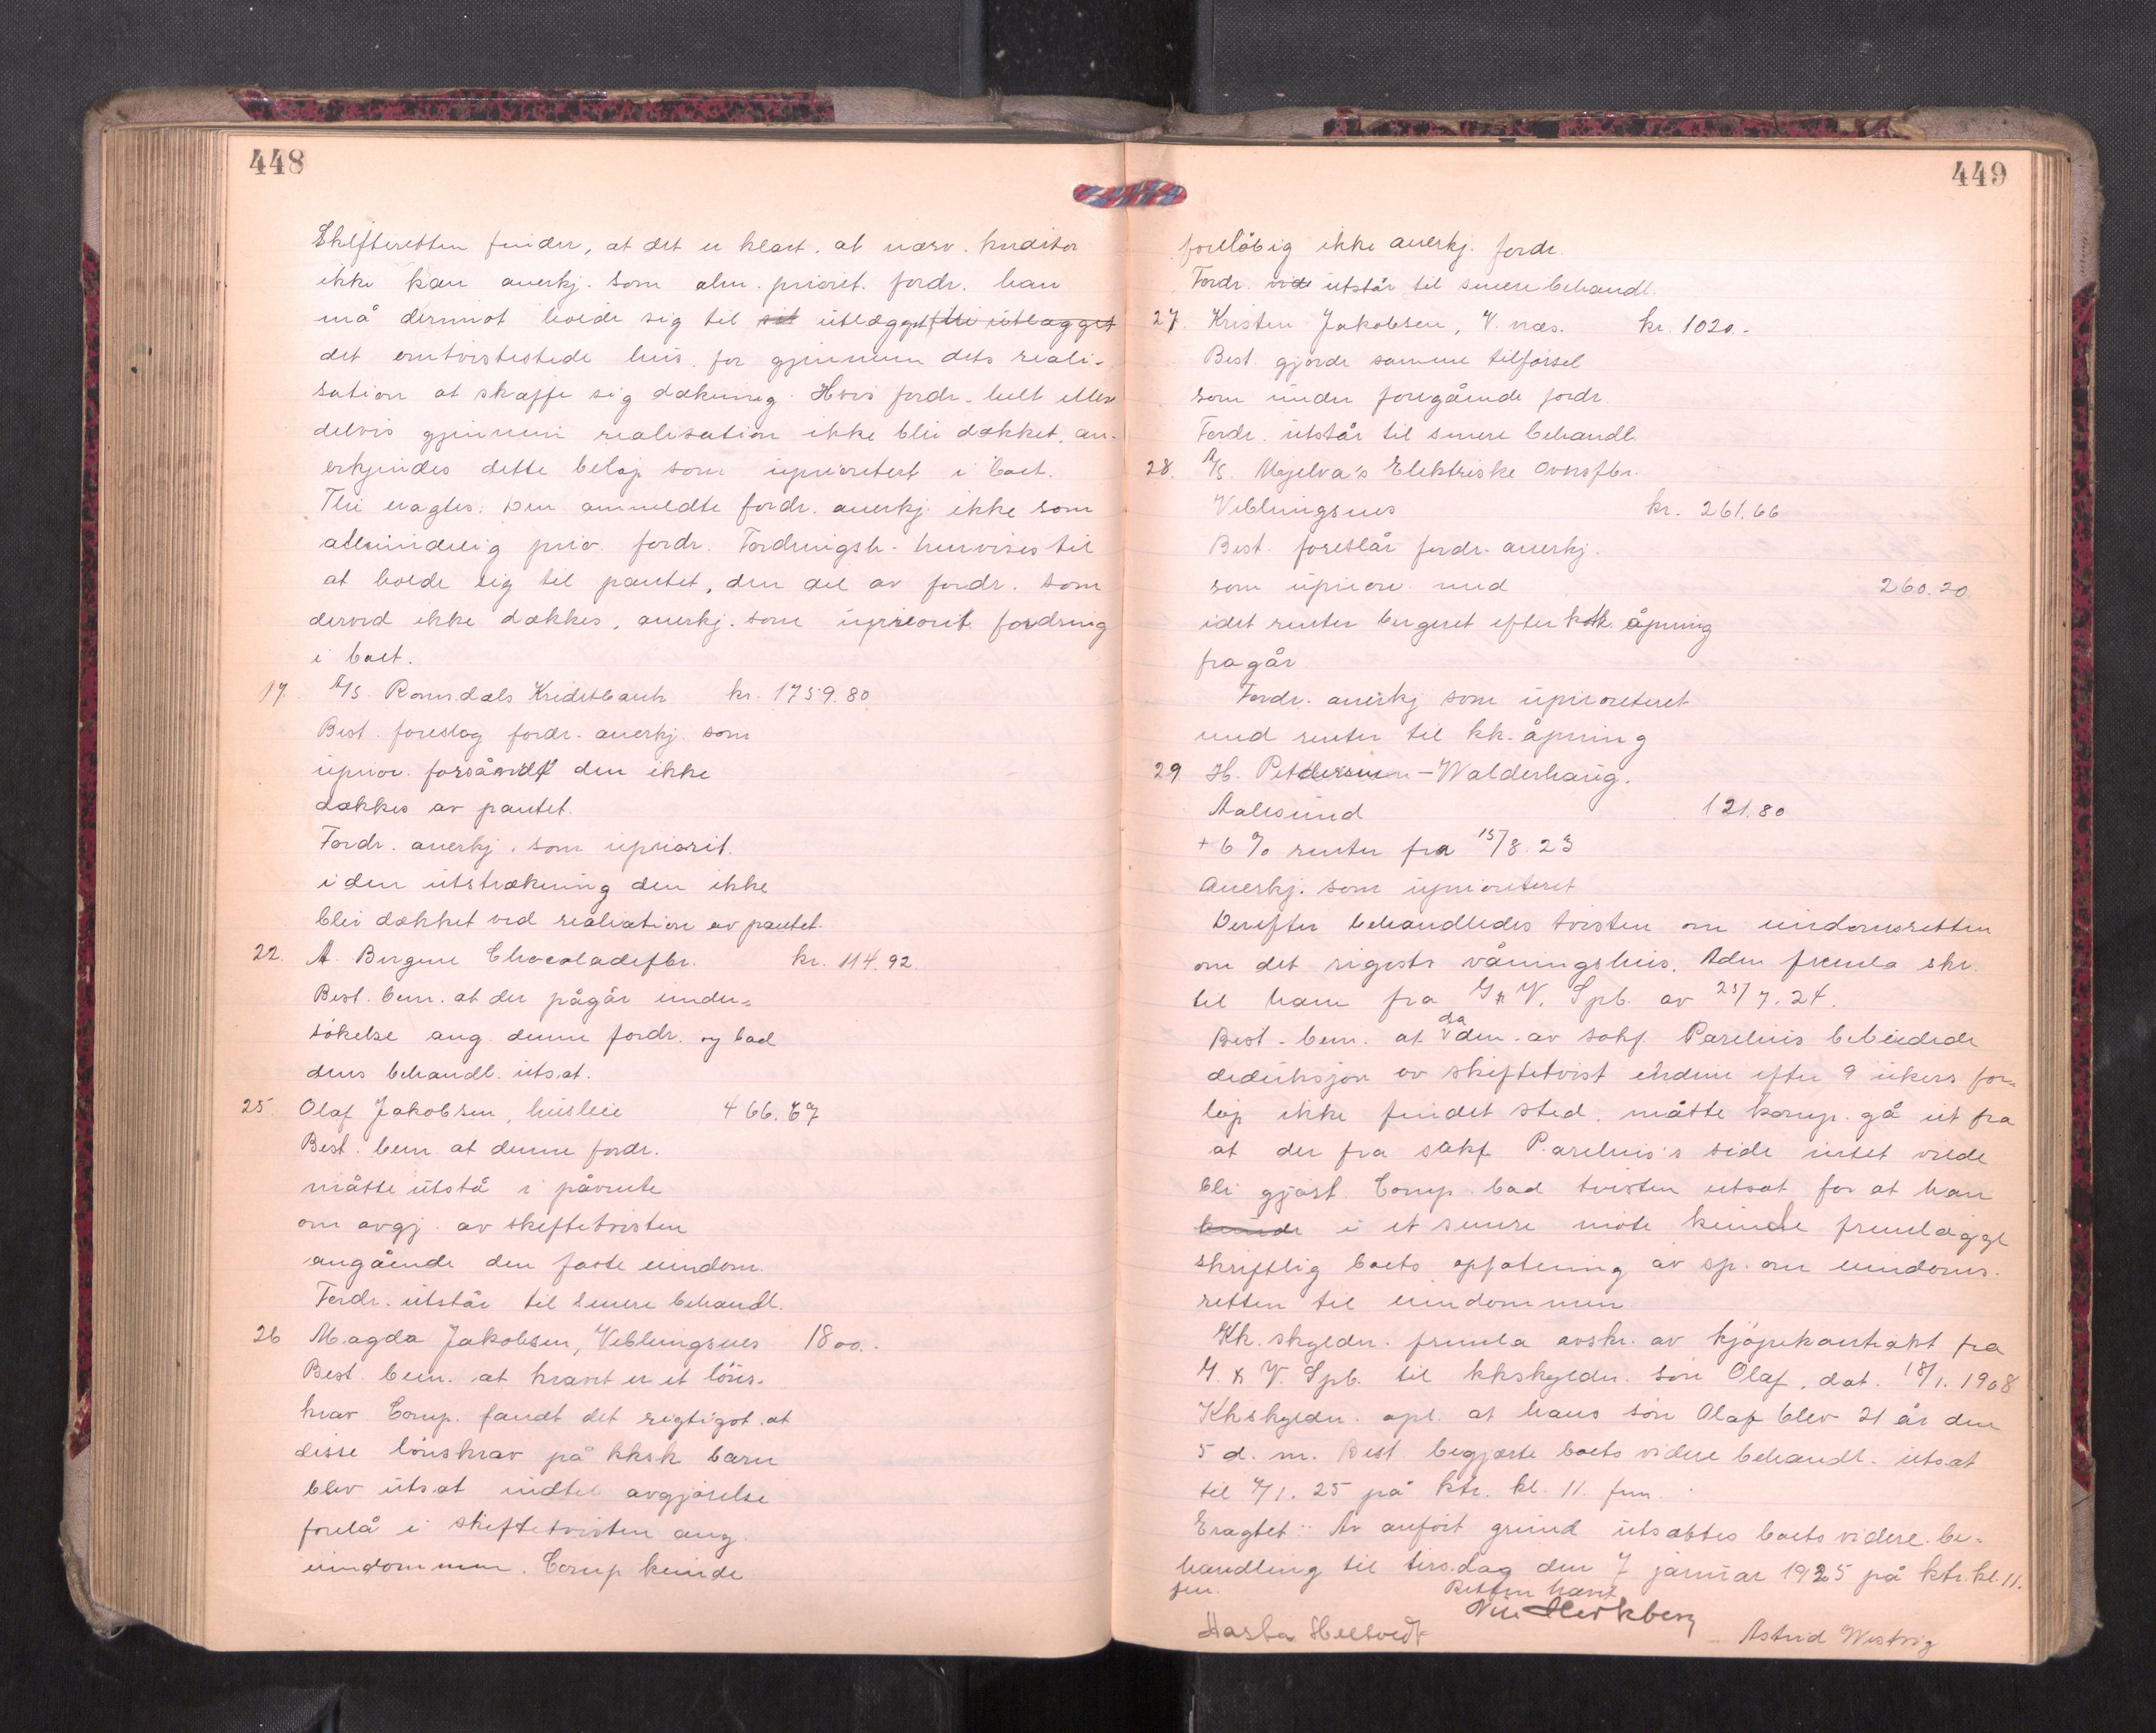 448
Skifteretten finder, at det er klart, at nærv. kreditor
ikke kan anerkj. som alm. priorit. fordr. han
må derimot holde sig til sit utlægget i utlægget
det omtvistestede hus for gjennem dets reali-
sation at skaffe sig dækning. Hvis fordr. helt eller
delvis gjennem realisation ikke blir dækket, an-
erkjendes dette beløp som uprioritert i boet.
Thi eragtes: Den anmeldte fordr. anerkj. ikke som
almindelig prior. fordr. Fordringsh. henvises til
at holde sig til pantet, den del av fordr. som
derved ikke dækkes, anerkj. som upriorit. fordring
i boet.
17. A/S. Romsdals Kreditbank kr. 1759.80
Best. foreslog fordr. anerkj. som
uprior. forsåvidt den ikke
dækkes av pantet.
Fordr. anerkj. som upriorit.
i den utstrækning den ikke
blir dækket ved realisation av pantet.
22. A. Bergene Chocoladefbr. kr. 114.92
Best. bem. at der pågår under-
søkelse ang. denne fordr. og bad
dens behandl. utsat.
25. Olaf Jakobsen, husleie 466.67
Best. bem. at denne fordr.
måtte utstå i påvente
om avgj. av skiftetvisten
angående den faste eiendom.
Fordr. utstår til senere behandl.
26 Magda Jakobsen, Veblungsnes 1800.-
Best. bem. at kravet er et løns-
krav. Comp. fandt det rigtigst at
disse lønskrav på kksk barn
blev utsat indtil avgjørelse
forelå i skiftetvisten ang.
eiendommen. Comp kunde
449
foreløbig ikke anerkj. fordr.
Fordr. utstår til senere behandl.
27. Kristen Jakobsen, V.næs. kr. 1020.-
Best. gjorde samme tilførsel
som under foregående fordr.
Fordr. utstår til senere behandl.
28. A/S. Mjelva's Elektriske Ovnsfbr.
Veblungsnes kr. 261.66
Best. foreslår fordr. anerkj.
som uprior. med 260.20
idet renter beregnet efter kk. åpning
fragår
Fordr. anerkj som uprioriteret
med renter til kk. åpning
29. H. Pettersen-Walderhaug.
Aalesund 121.80
+ 6 % renter fra 15/8. 23
Anerkj. som uprioriteret
Derefter behandledes tvisten om eiendomsretten
om det rigests våningshus. Adm fremla skr.
til ham fra G & V. Spb. av 25/7. 24.
Best. bem. at da den av sakf. Parelius bebudede
deduksjon av skiftetvist endnu efter 9 ukers for-
løp ikke fundet sted, måtte komp. gå ut fra
at der fra sakf Parelius's side intet vilde
bli gjort. Comp. bad tvisten utsat for at han
kunde i et senere møte kunde fremlægge
skriftlig boets opfatning av sp. om eiendoms-
retten til eiendommen.
Kk. skyldn. fremla avskr. av kjøpekontrakt fra
G. & V. Spb. til kkskyldn. søn Olaf, dat. 18/1. 1908
Kkskyldn. opl. at hans søn Olaf blev 21 år den
5 d. m. Best. begjærte boets videre behandl. utsat
til 7/1. 25 på ktr. kl. 11. fm.
Eragtet: Av anført grund utsættes boets videre be-
handling til tirsdag den 7 januar 1925 på ktr. kl. 11.
fm.
Retten hævet
Astrid Westvig